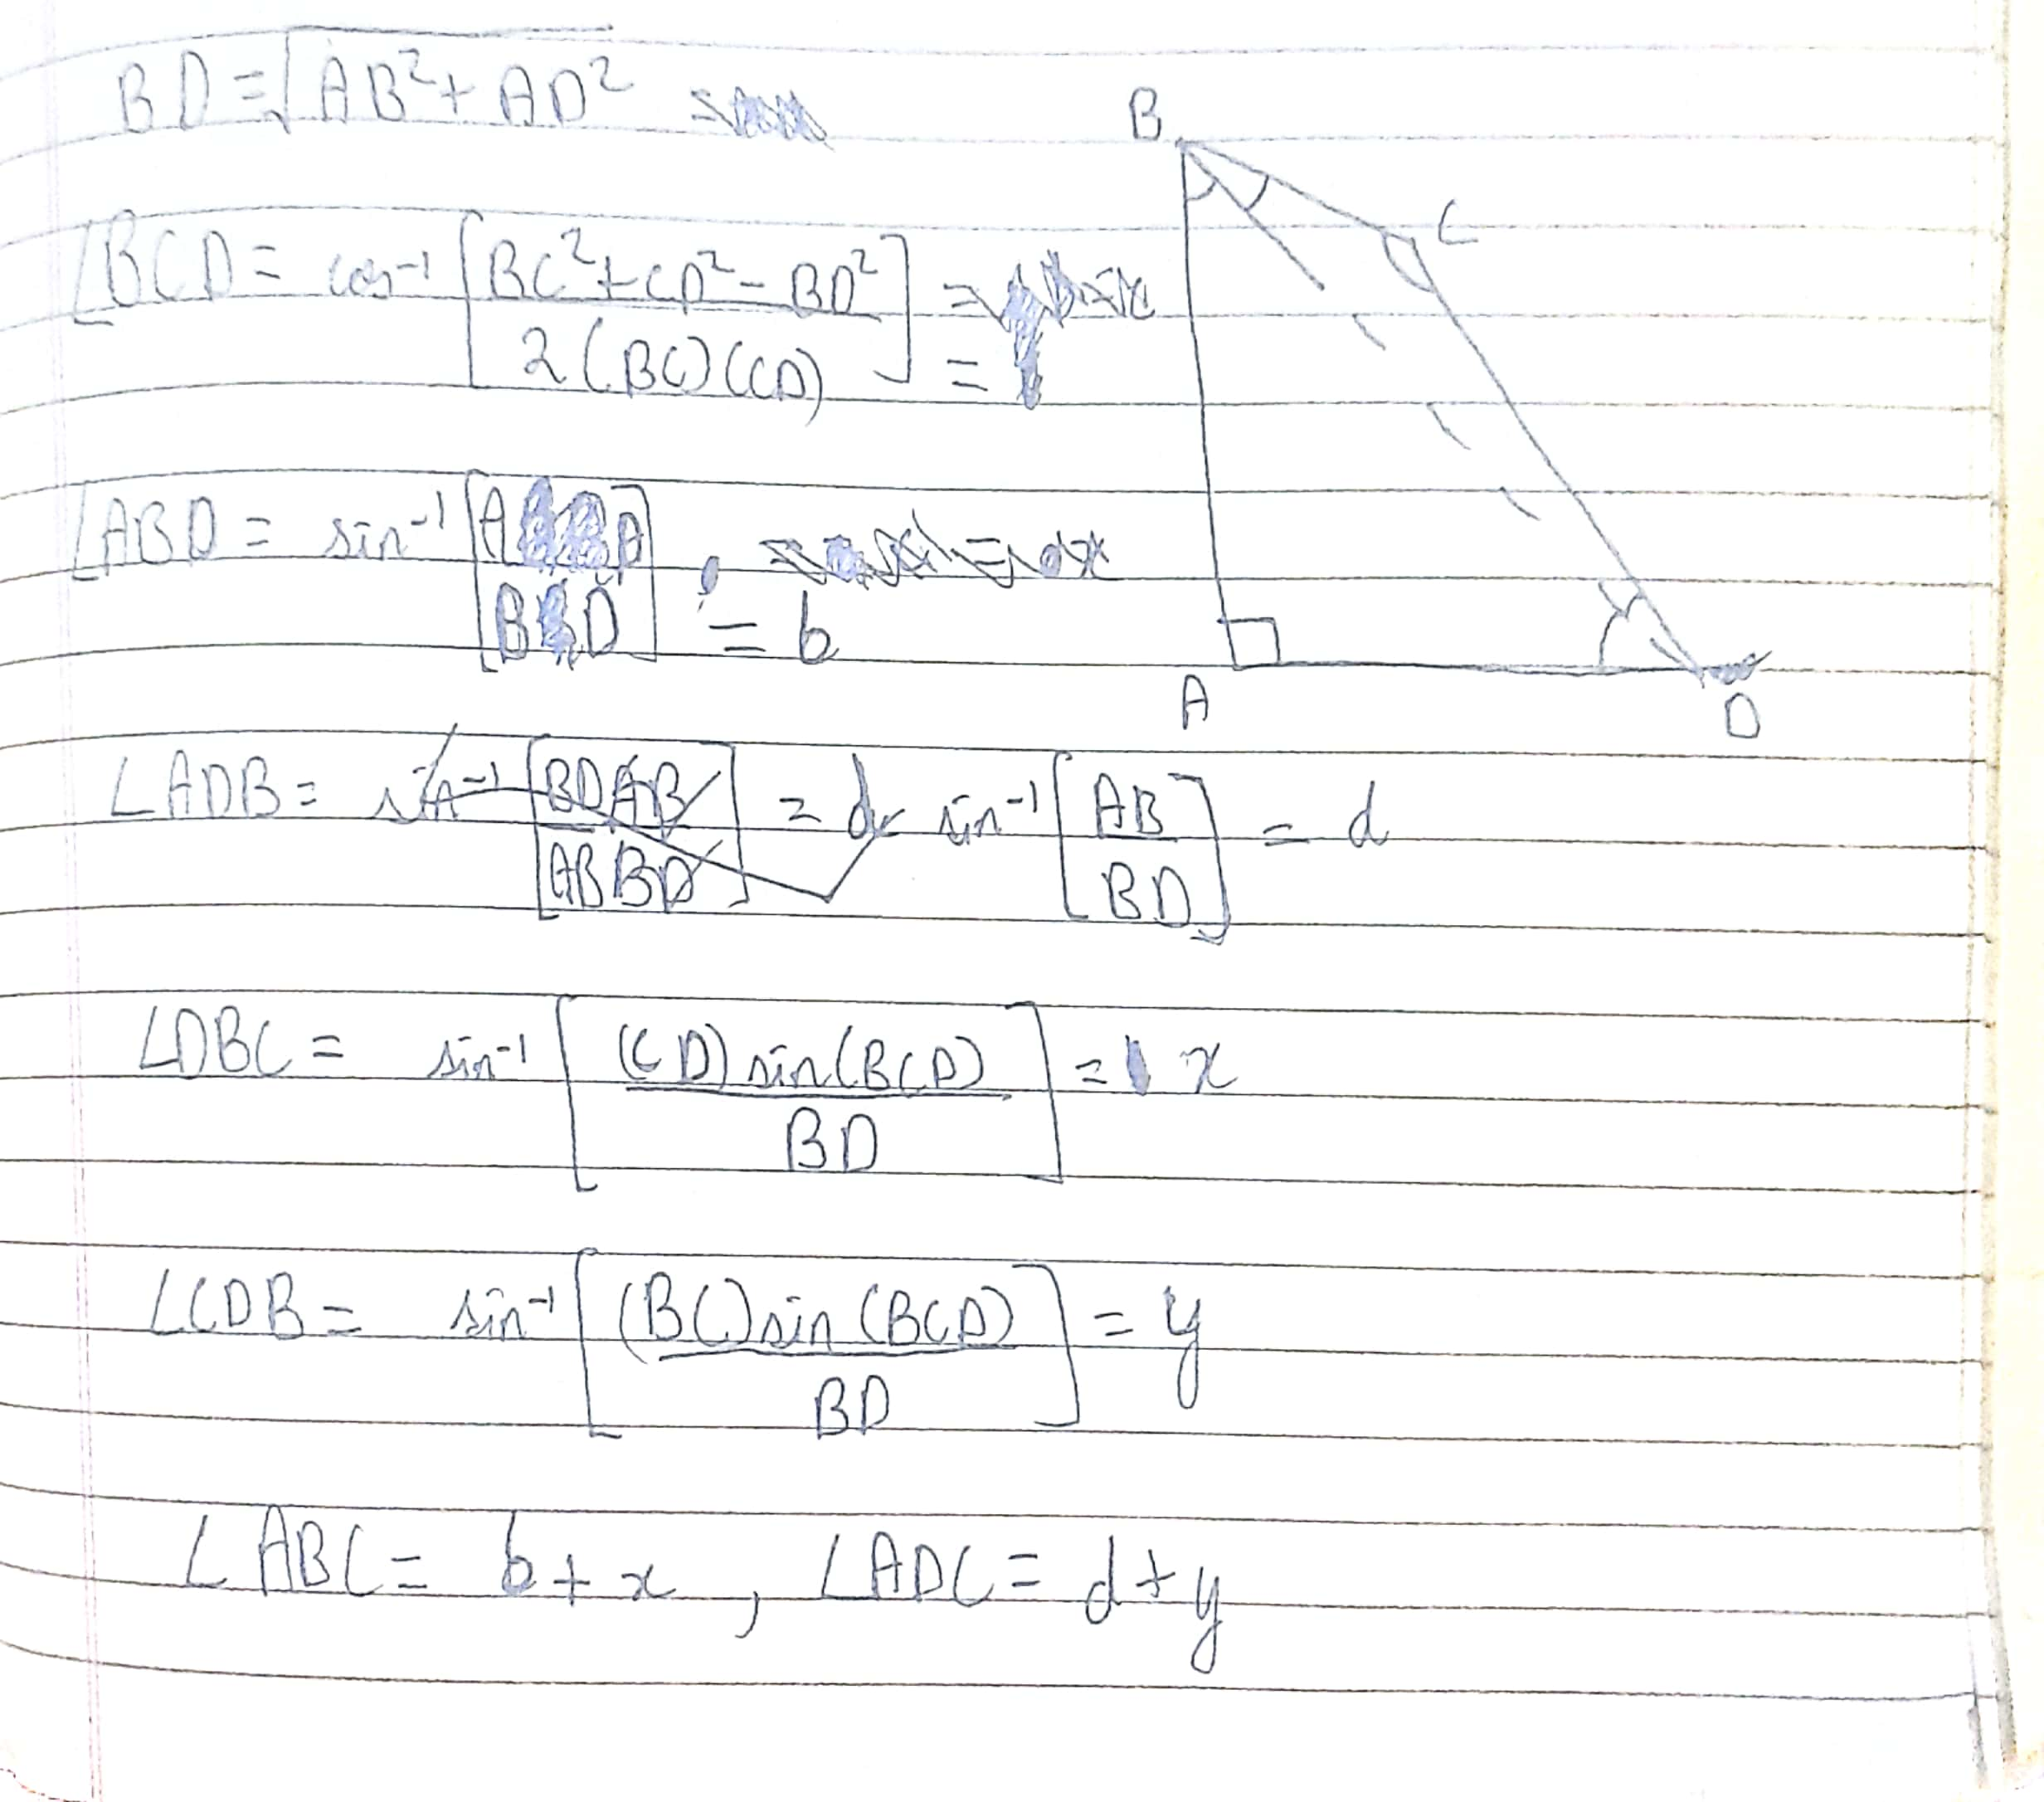 BD = √AB²+ AD²
∠BCD = cos⁻¹ [BC²+CD²-BD² / 2(BC)(CD)] =
∠ABD = sin⁻¹ [AD / BD] = b
∠ADB = sin⁻¹ [AB / BD] = d
∠DBC = sin⁻¹ [(CD) sin(BCD) / BD] = x
∠CDB = sin⁻¹ [(BC) sin(BCD) / BD] = y
∠ABC = b + x , ∠ADC = d + y
B
C
A
D